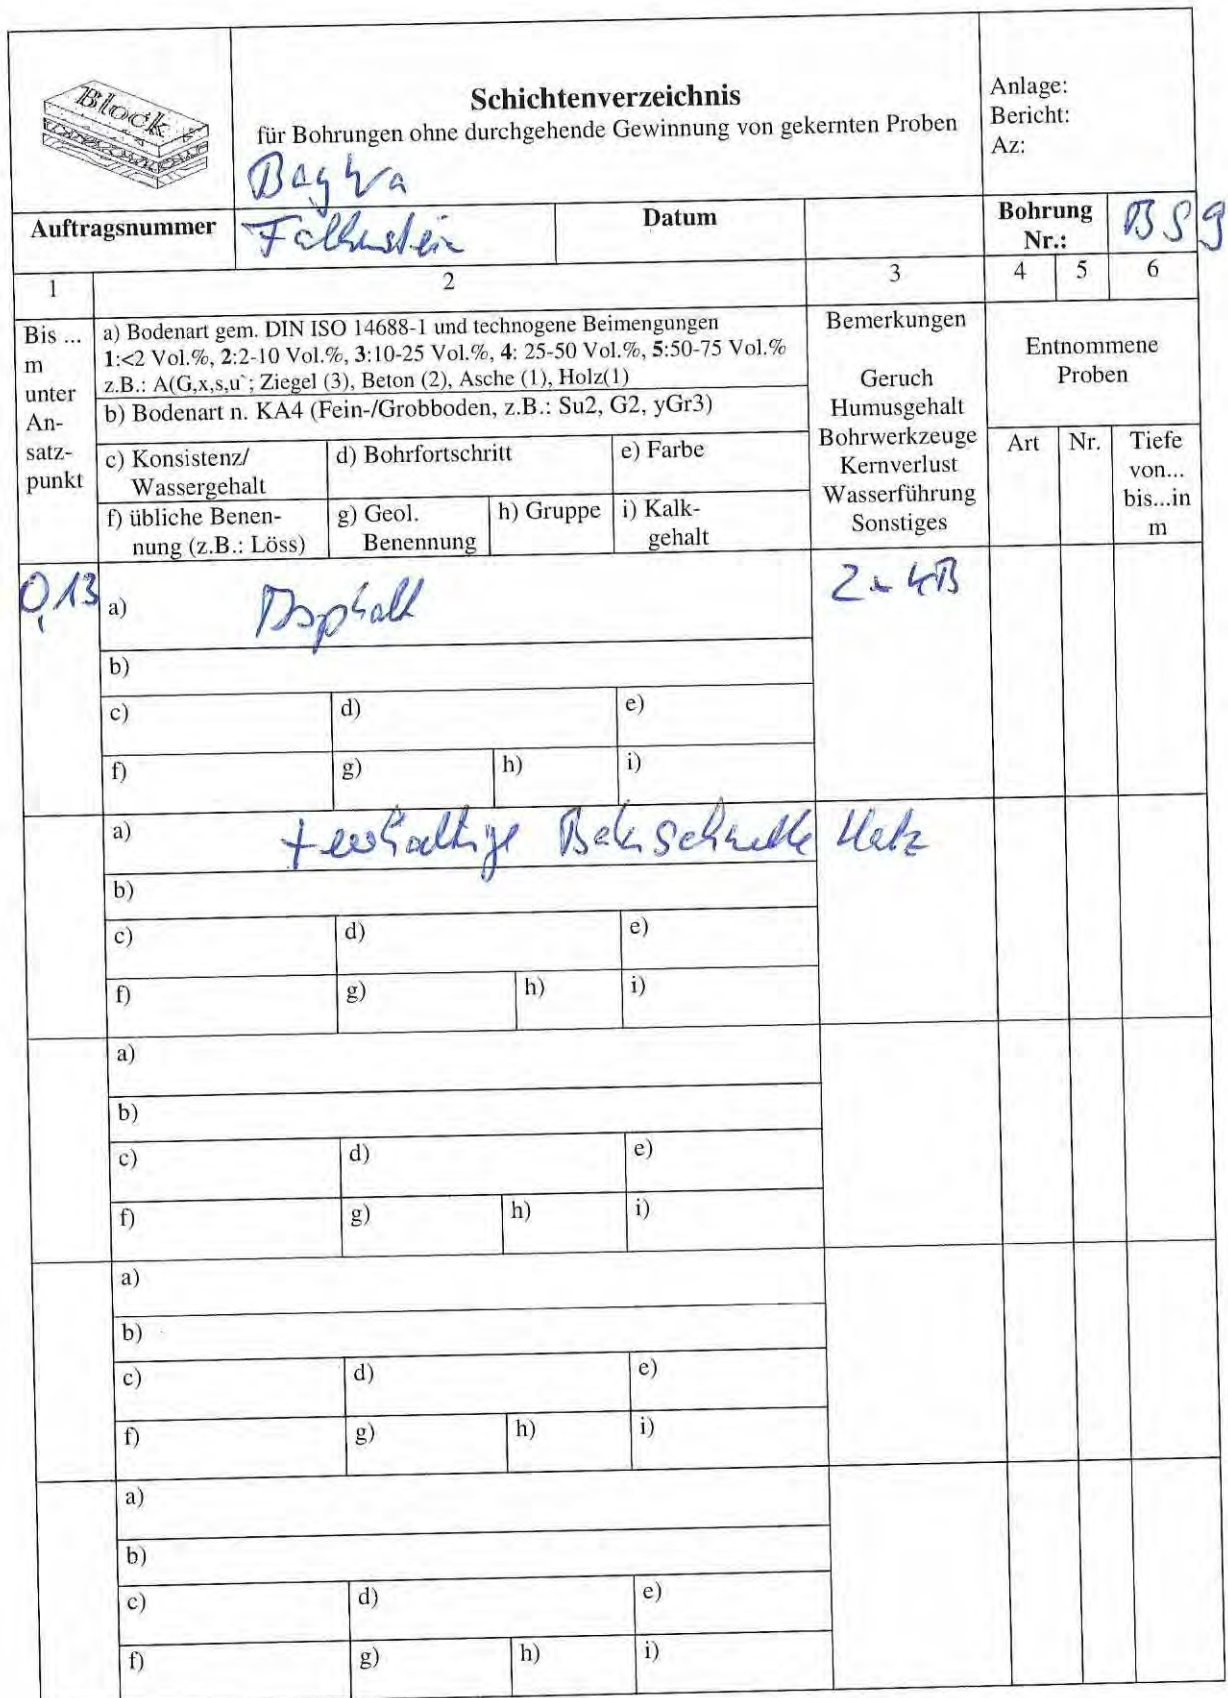 Block
Schichtenverzeichnis
für Bohrungen ohne durchgehende Gewinnung von gekernten Proben
Anlage:
Bericht:
Az:
Auftragsnummer
Falkenstein
Datum
Bohrung
Nr.:
BS9
1 2 3 4 5 6
Bis ...
m
unter
An-
satz-
punkt
a) Bodenart gem. DIN ISO 14688-1 und technogene Beimengungen
1:<2 Vol.%, 2:2-10 Vol.%, 3:10-25 Vol.%, 4: 25-50 Vol.%, 5:50-75 Vol.%
z.B.: A(G,x,s,u`; Ziegel (3), Beton (2), Asche (1), Holz(1)
b) Bodenart n. KA4 (Fein-/Grobboden, z.B.: Su2, G2, yGr3)
c) Konsistenz/
Wassergehalt
d) Bohrfortschritt
e) Farbe
f) übliche Benen-
nung (z.B.: Löss)
g) Geol.
Benennung
h) Gruppe
i) Kalk-
gehalt
Bemerkungen
Geruch
Humusgehalt
Bohrwerkzeuge
Kernverlust
Wasserführung
Sonstiges
Entnommene
Proben
Art
Nr.
Tiefe
von...
bis...in
m
0,13
a) Asphalt
b)
c) d) e)
f) g) h) i)
a) teerhaltige Bahnschwelle Holz
b)
c) d) e)
f) g) h) i)
a)
b)
c) d) e)
f) g) h) i)
a)
b)
c) d) e)
f) g) h) i)
a)
b)
c) d) e)
f) g) h) i)